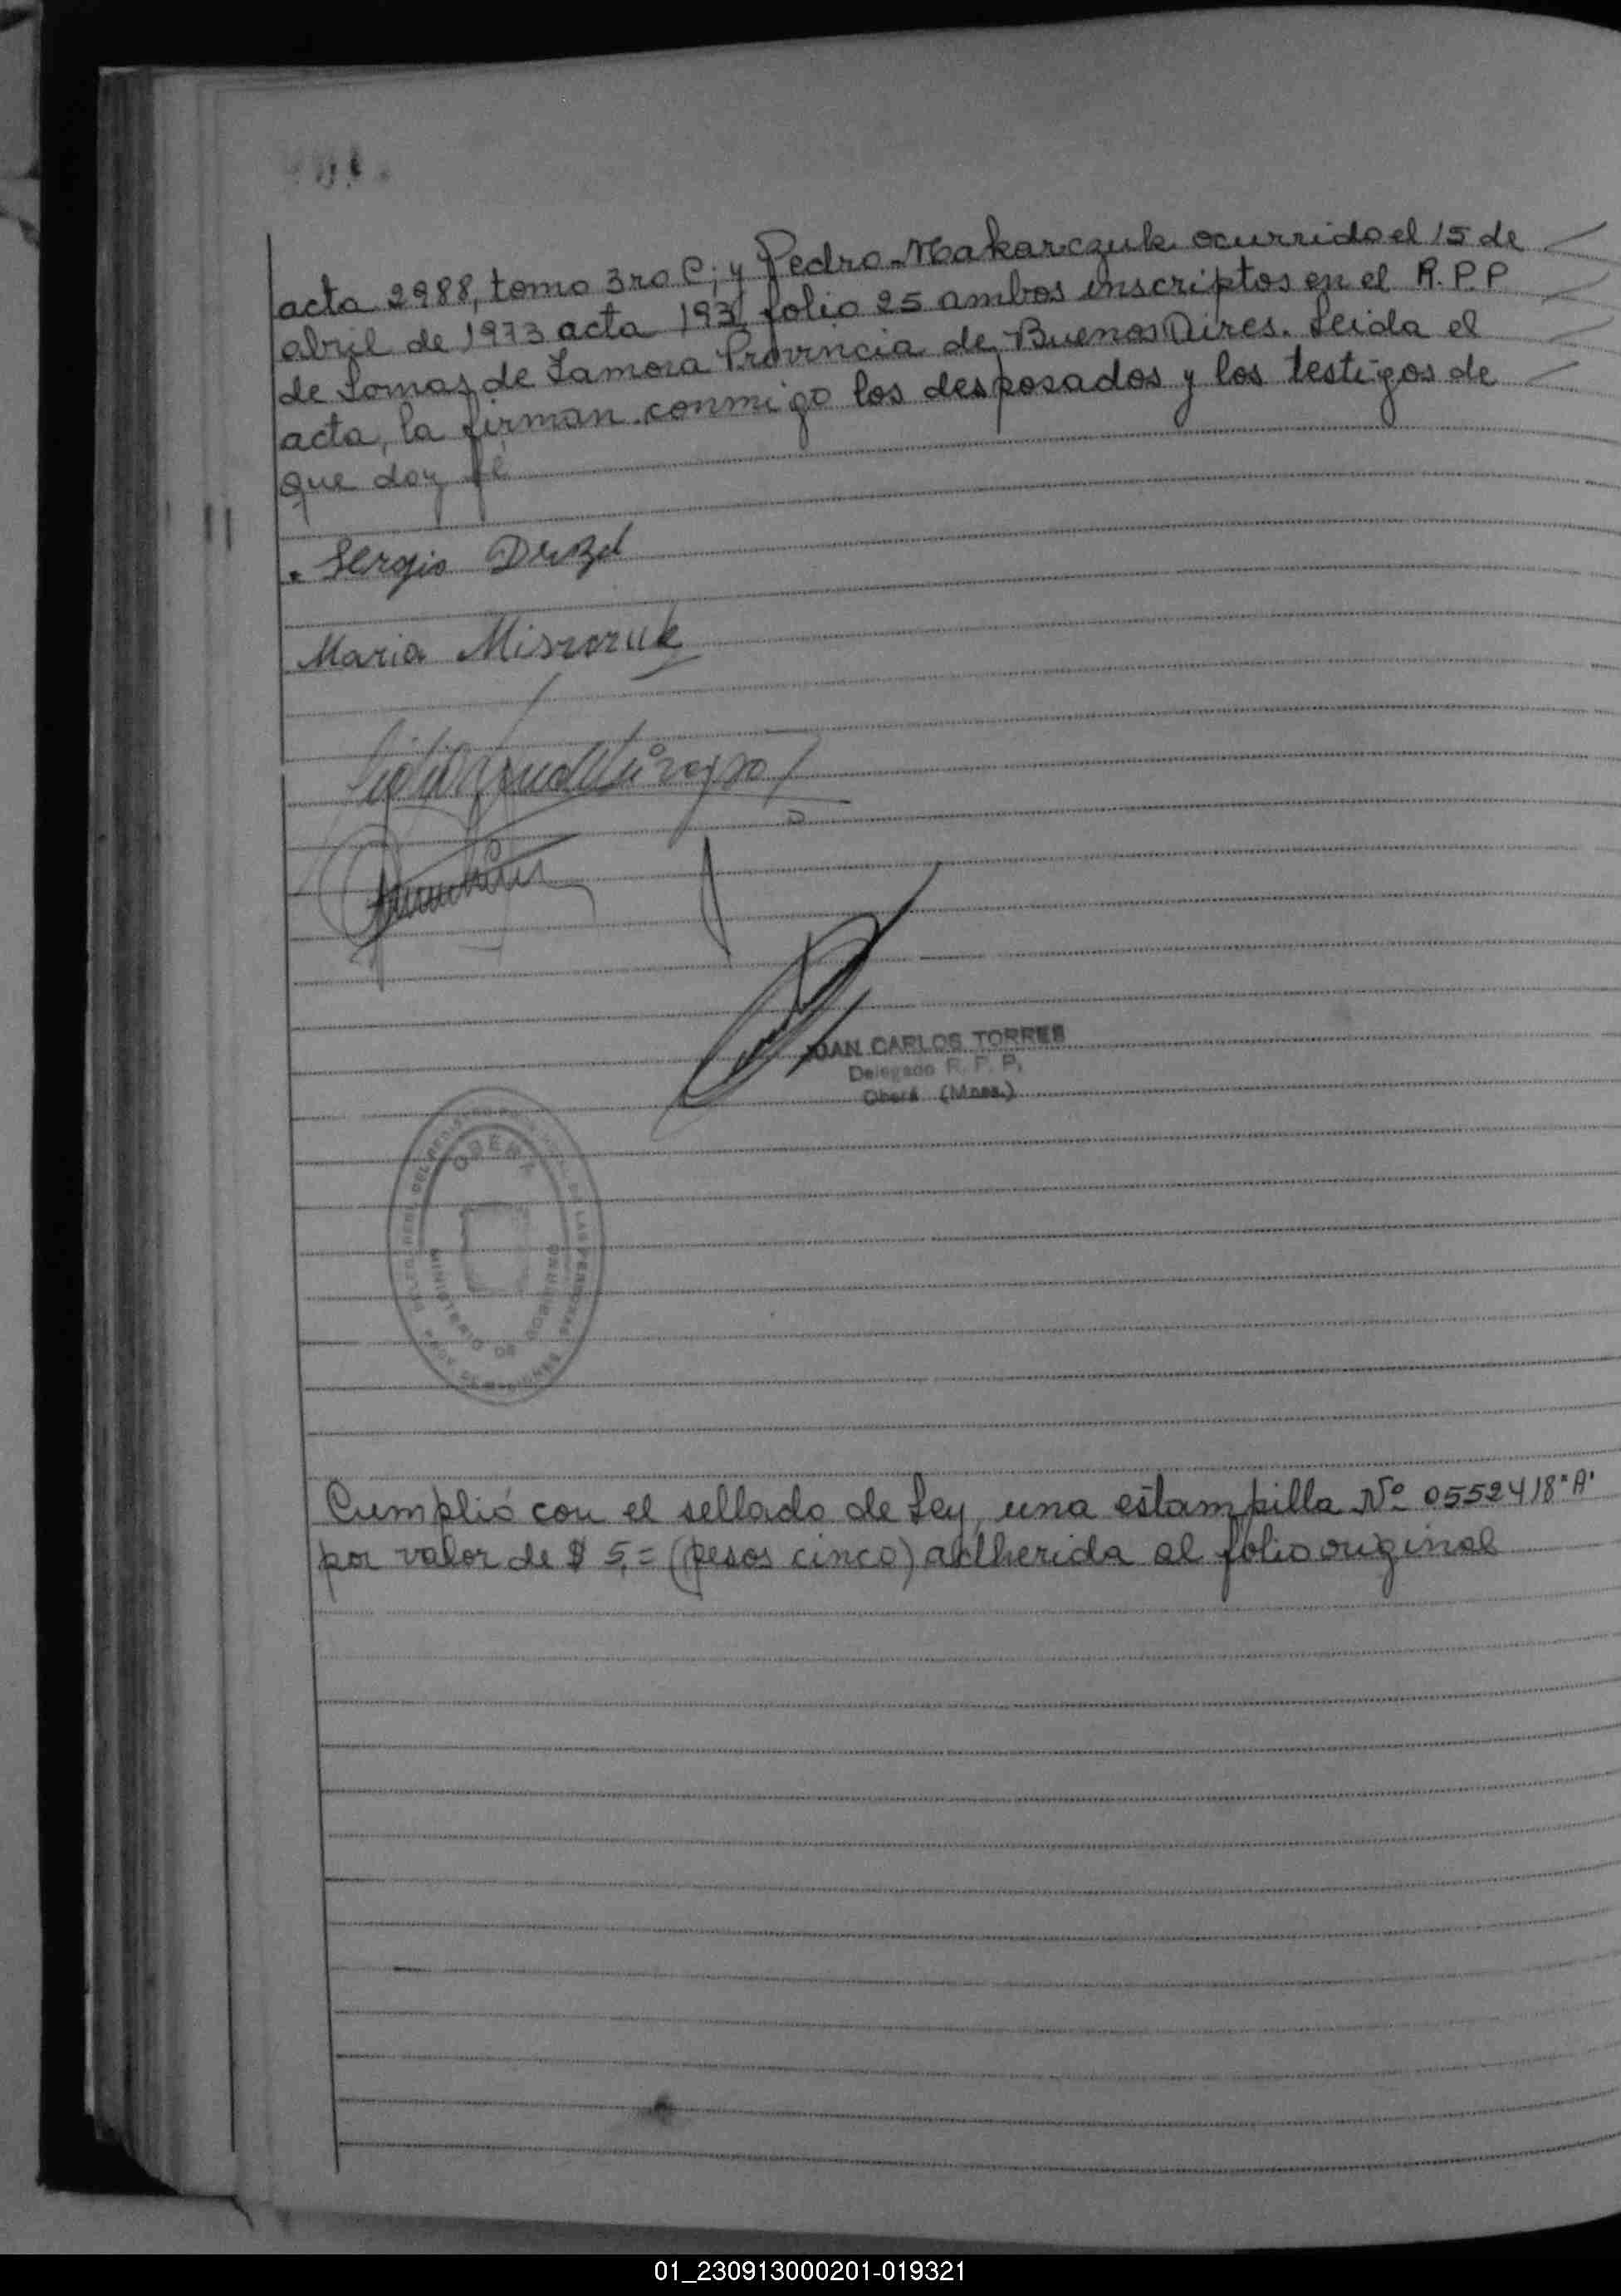 acta 2988, tomo 3ro C; y Pedro Makarczuk ocurrido el 15 de
abril de 1973 acta 193 folio 25 ambos inscriptos en el R.P.P
de Lomas de Zamora Provincia de Buenos Aires. Leida el
acta, la firman conmigo los desposados y los testigos de
que doy fé
Sergio
Maria Miszczuk
JUAN CARLOS TORRES
Delegado R. P. P.
Oberá (Mnes.)
OBERA
MINISTERIO DE GOBIERNO
Cumplió con el sellado de Ley, una estampilla Nº 0552418 "A"
por valor de $ 5,= (pesos cinco) adherida al folio original
01_230913000201-019321